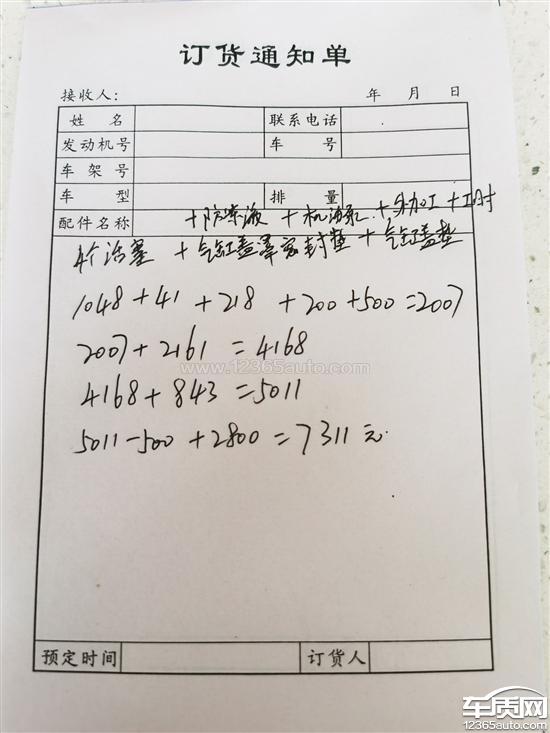 订货通知单
接收人： 年 月 日
姓 名 联系电话
发动机号 车 号
车 架 号
车 型 排 量
配件名称 +防冻液 +机油泵 +外加工 +工时
4个活塞 +气缸盖罩密封垫 +气缸盖垫
1048+41 +218 +200+500=2007
2007+2161 =4168
www.12365auto.com
4168+843 =5011
5011-500+2800=7311元
预定时间 订货人
车质网
12365auto.com